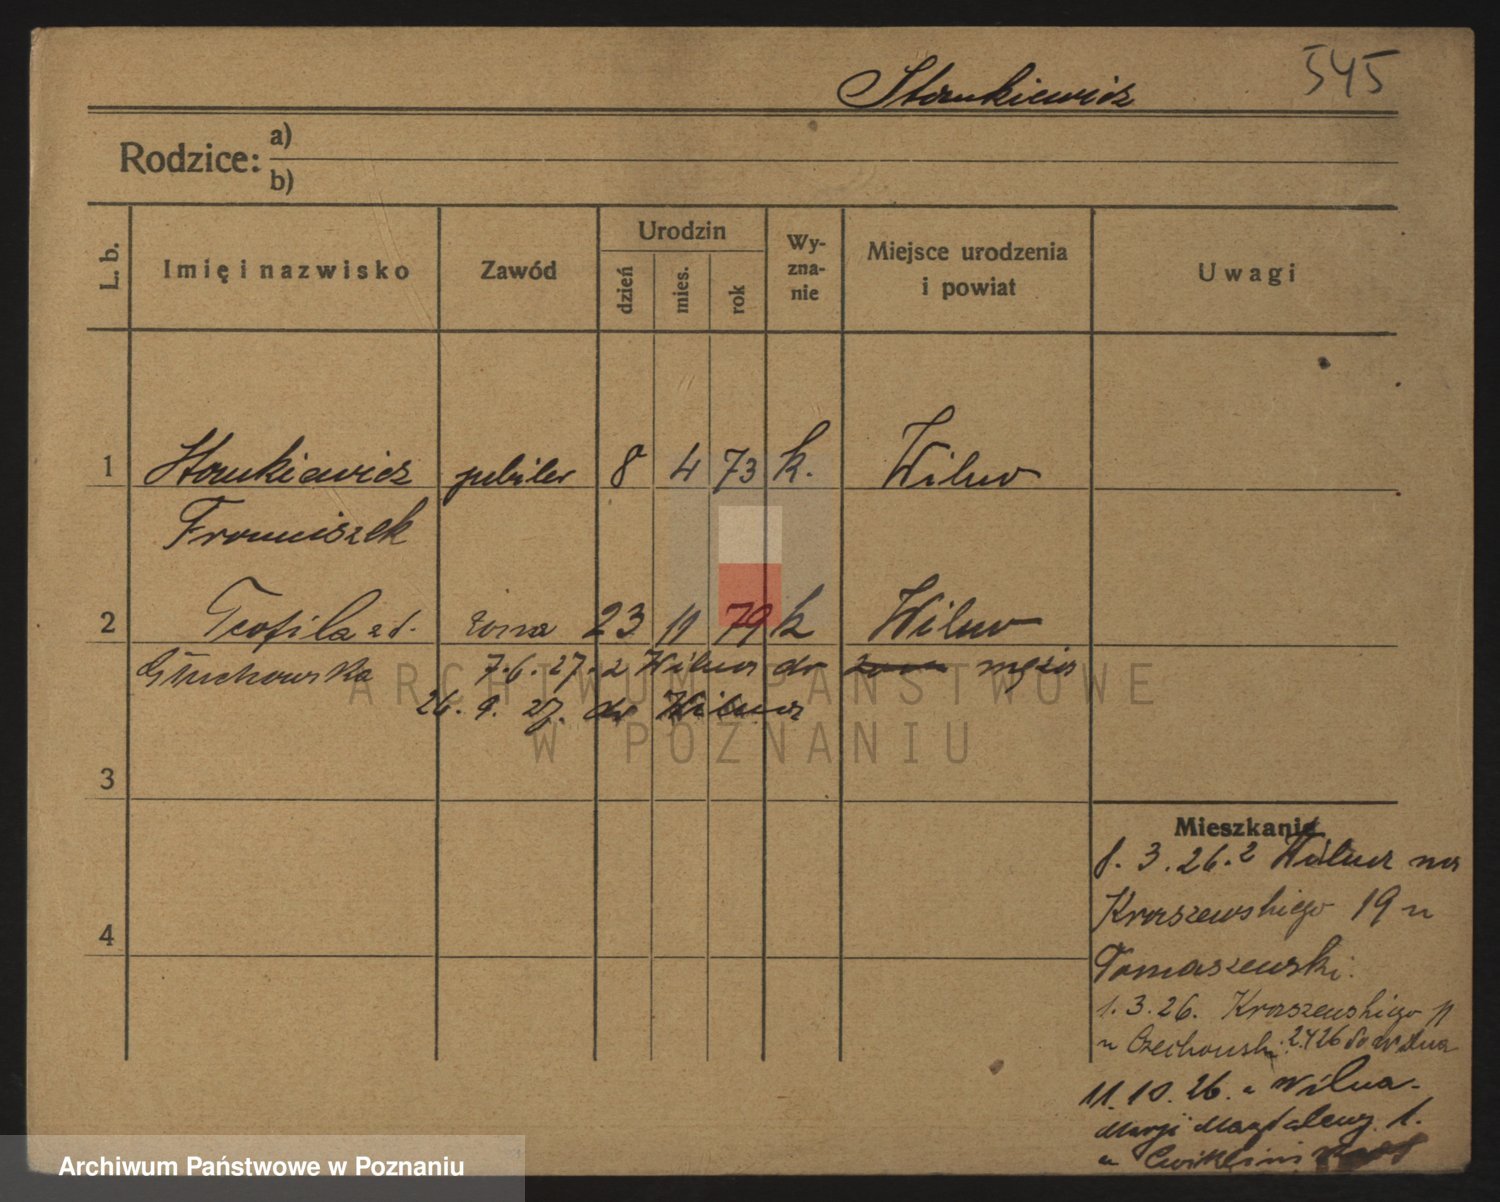 Stankiewicz 545
Rodzice: a)
b)
L. b. Imię i nazwisko Zawód Urodzin dzień mies. rok Wy-zna-nie Miejsce urodzenia i powiat Uwagi
1 Stankiewicz jubiler 8 4 73 k. Wilno
Franciszek
2 Teofila zd. żona 23 11 79 k Wilno
Głuchowska 7.6.27. z Wilna do męża
26.9.27. do Wilna
ARCHIWUM PAŃSTWOWE
W POZNANIU
3
Mieszkanie
8.3.26. z Wilna na
Kraszewskiego 19 u
4
Tomaszewski.
1.3.26. Kraszewskiego 11
u Czechowski. 2426 do Wilna
11.10.26. z Wilna.
Marji Magdaleny 1.
u
Archiwum Państwowe w Poznaniu